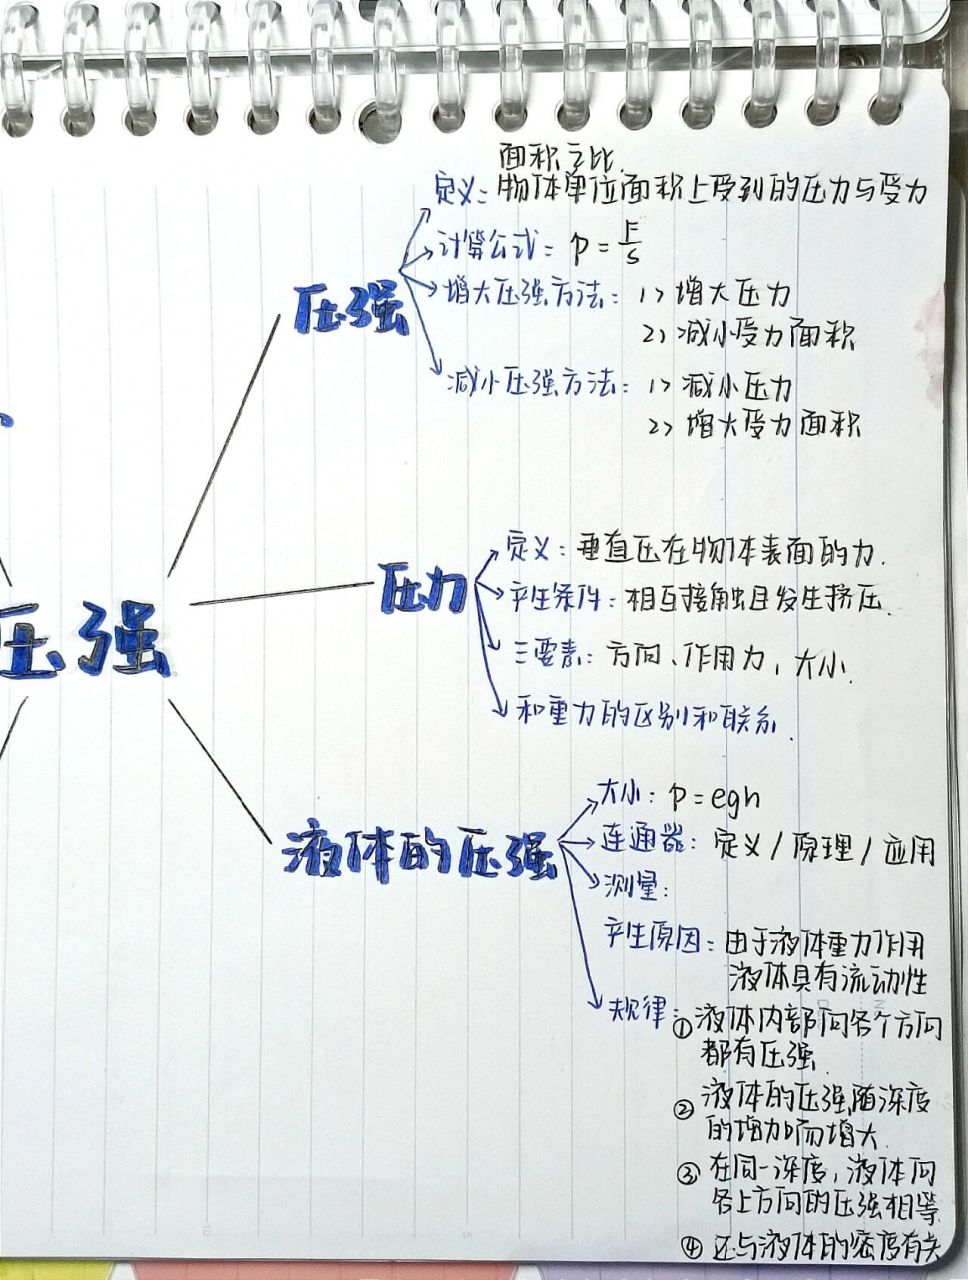 压强
压强
面积之比.
定义: 物体单位面积上受到的压力与受力
计算公式: p = F/S
增大压强方法: 1> 增大压力
2) 减小受力面积
减小压强方法: 1> 减小压力
2> 增大受力面积
压力
定义: 垂直压在物体表面的力.
产生条件: 相互接触且发生挤压.
三要素: 方向、作用力, 大小.
和重力的区别和联系.
液体的压强
大小: p = egh
连通器: 定义 / 原理 / 应用
测量:
产生原因: 由于液体重力作用
液体具有流动性
规律: ① 液体内部向各个方向
都有压强.
② 液体的压强随深度
的增加而增大.
③ 在同一深度, 液体向
各上方向的压强相等.
④ 还与液体的密度有关